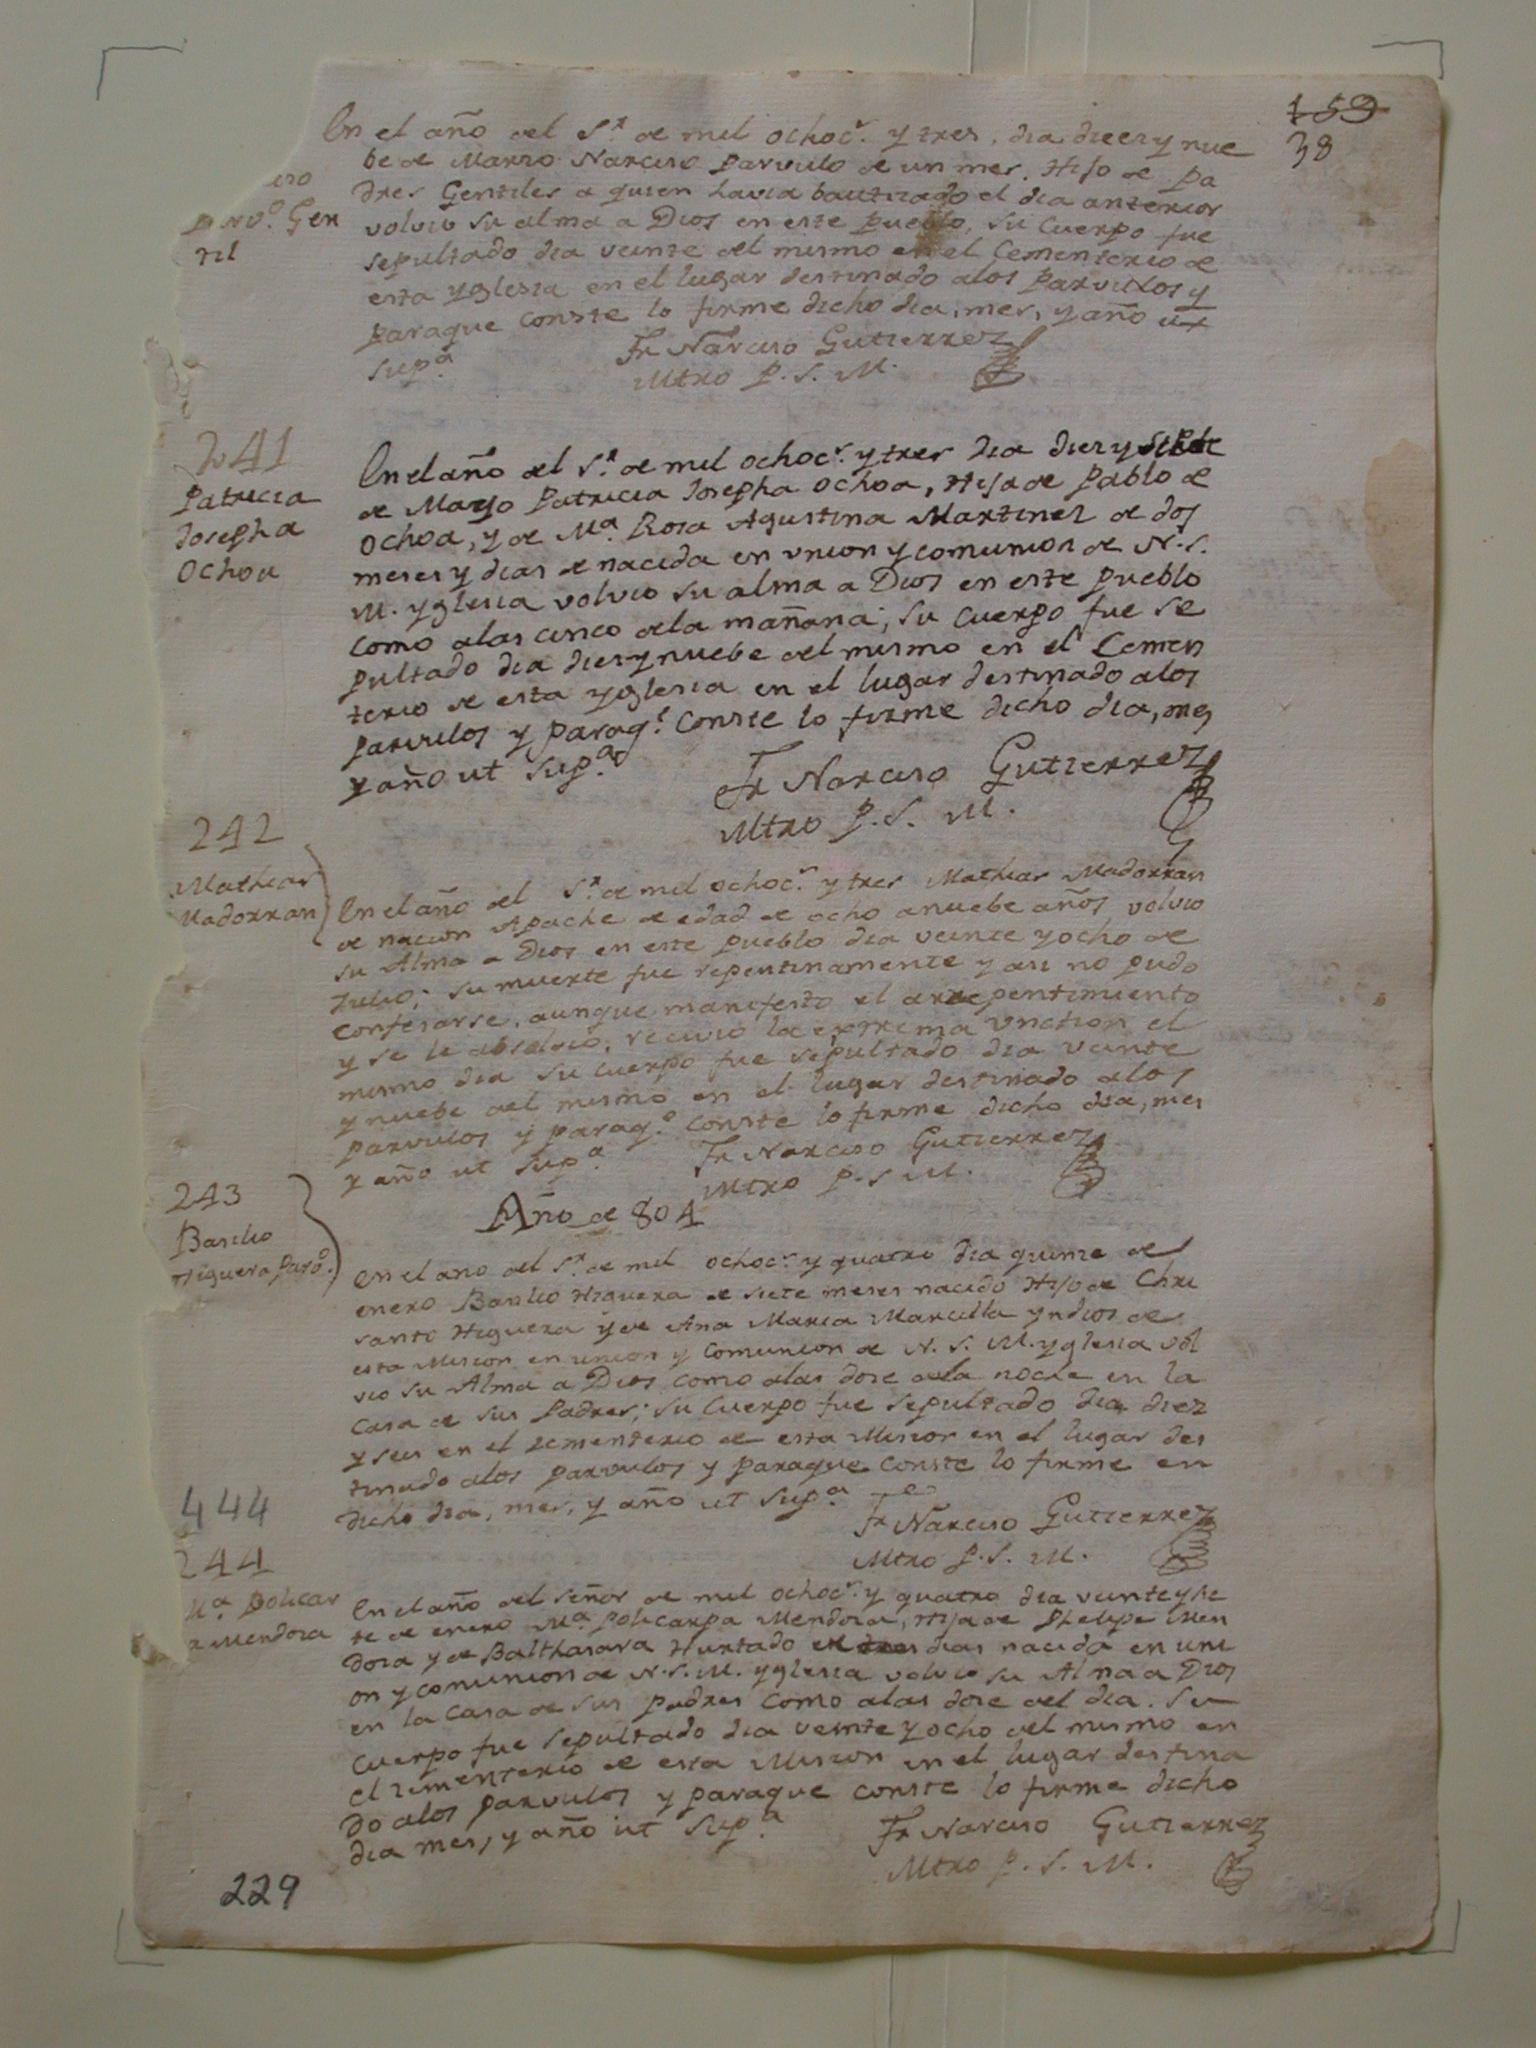 159
38
En el año del S.r de mil ochoc.s y tres, dia diez y nue
be de Marzo Narciso parvulo de un mes. Hijo de pa
dres Gentiles a quien havia bautizado el dia anterior
volvio su alma a Dios en este pueblo, su cuerpo fue
sepultado dia veinte del mismo en el Cementerio de
esta yglesia en el lugar destinado alos parvulos y
paraque conste lo firme dicho dia, mes, y año ut
sup.a
Fr Narciso Gutierrez
Mtro P. S. M.
iso
parvo. Gen
til
241
Patricia
Josepha
Ochoa
En el año del S.r de mil ochoc.s y tres dia diez y siete
de Marzo Patricia Josepha Ochoa, Hija de Pablo de
Ochoa, y de M.a Rosa Agustina Martinez de dos
meses y dias de nacida en vnion y comunion de N. S.
M. yglesia volvio su alma a Dios en este pueblo
como alas cinco dela mañana; su cuerpo fue se
pultado dia diez y nuebe del mismo en el Cemen
terio de esta yglesia en el lugar destinado alos
parvulos y paraq.e conste lo firme dicho dia, mes
y año ut sup.a
Fr Narciso Gutierrez
Mtro P. S. M.
242
Mathias
Madorran
En el año del S.r de mil ochoc.s y tres Mathias Madorran
de nacion Apache de edad de ocho a nuebe años volvio
su Alma a Dios en este pueblo dia veinte y ocho de
Julio; su muerte fue repentinamente y asi no pudo
confesarse, aunque manifesto el arrepentimiento
y se le absolvio; recivio la extrema vnction el
mismo dia su cuerpo fue sepultado dia veinte
y nuebe del mismo en el lugar destinado alos
parvulos y paraq.e conste lo firme dicho dia, mes
y año ut sup.a
Fr Narciso Gutierrez
Mtro P. S. M.
Año de 804
243
Basilio
Higuera parvo.
En el ano del S.r de mil ochoc.s y quatro dia quinze de
enero Basilio Higuera de siete meses nacido Hijo de Chri
santo Higuera y de Ana Maria Marcilla yndios de
esta Mision en union y comunion de N. S. M. yglesia vol
vio su Alma a Dios como alas doze dela noche en la
casa de sus Padres; su cuerpo fue sepultado dia diez
y seis en el zementerio de esta Mision en el lugar des
tinado alos parvulos y paraque conste lo firme en
dicho dia, mes, y año ut sup.a
Fr Narciso Gutierrez
Mtro P. S. M.
444
244
M.a Policar
pa Mendoza
En el año del señor de mil ochoc.s y quatro dia veinte y sie
te de enero M.a Policarpa Mendoza, Hija de Phelipe Men
doza y de Balthasara Hurtado de tres dias nacida en uni
on y comunion de N. S. M. yglesia volvio su Alma a Dios
en la casa de sus padres como alas doze del dia. Su
cuerpo fue sepultado dia veinte y ocho del mismo en
el zimenterio de esta Mision en el lugar destina
do alos parvulos y paraque conste lo firme dicho
dia mes, y año ut sup.a
Fr Narciso Gutierrez
Mtro P. S. M.
229